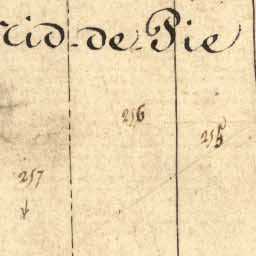 rid-de-Pie
256
257